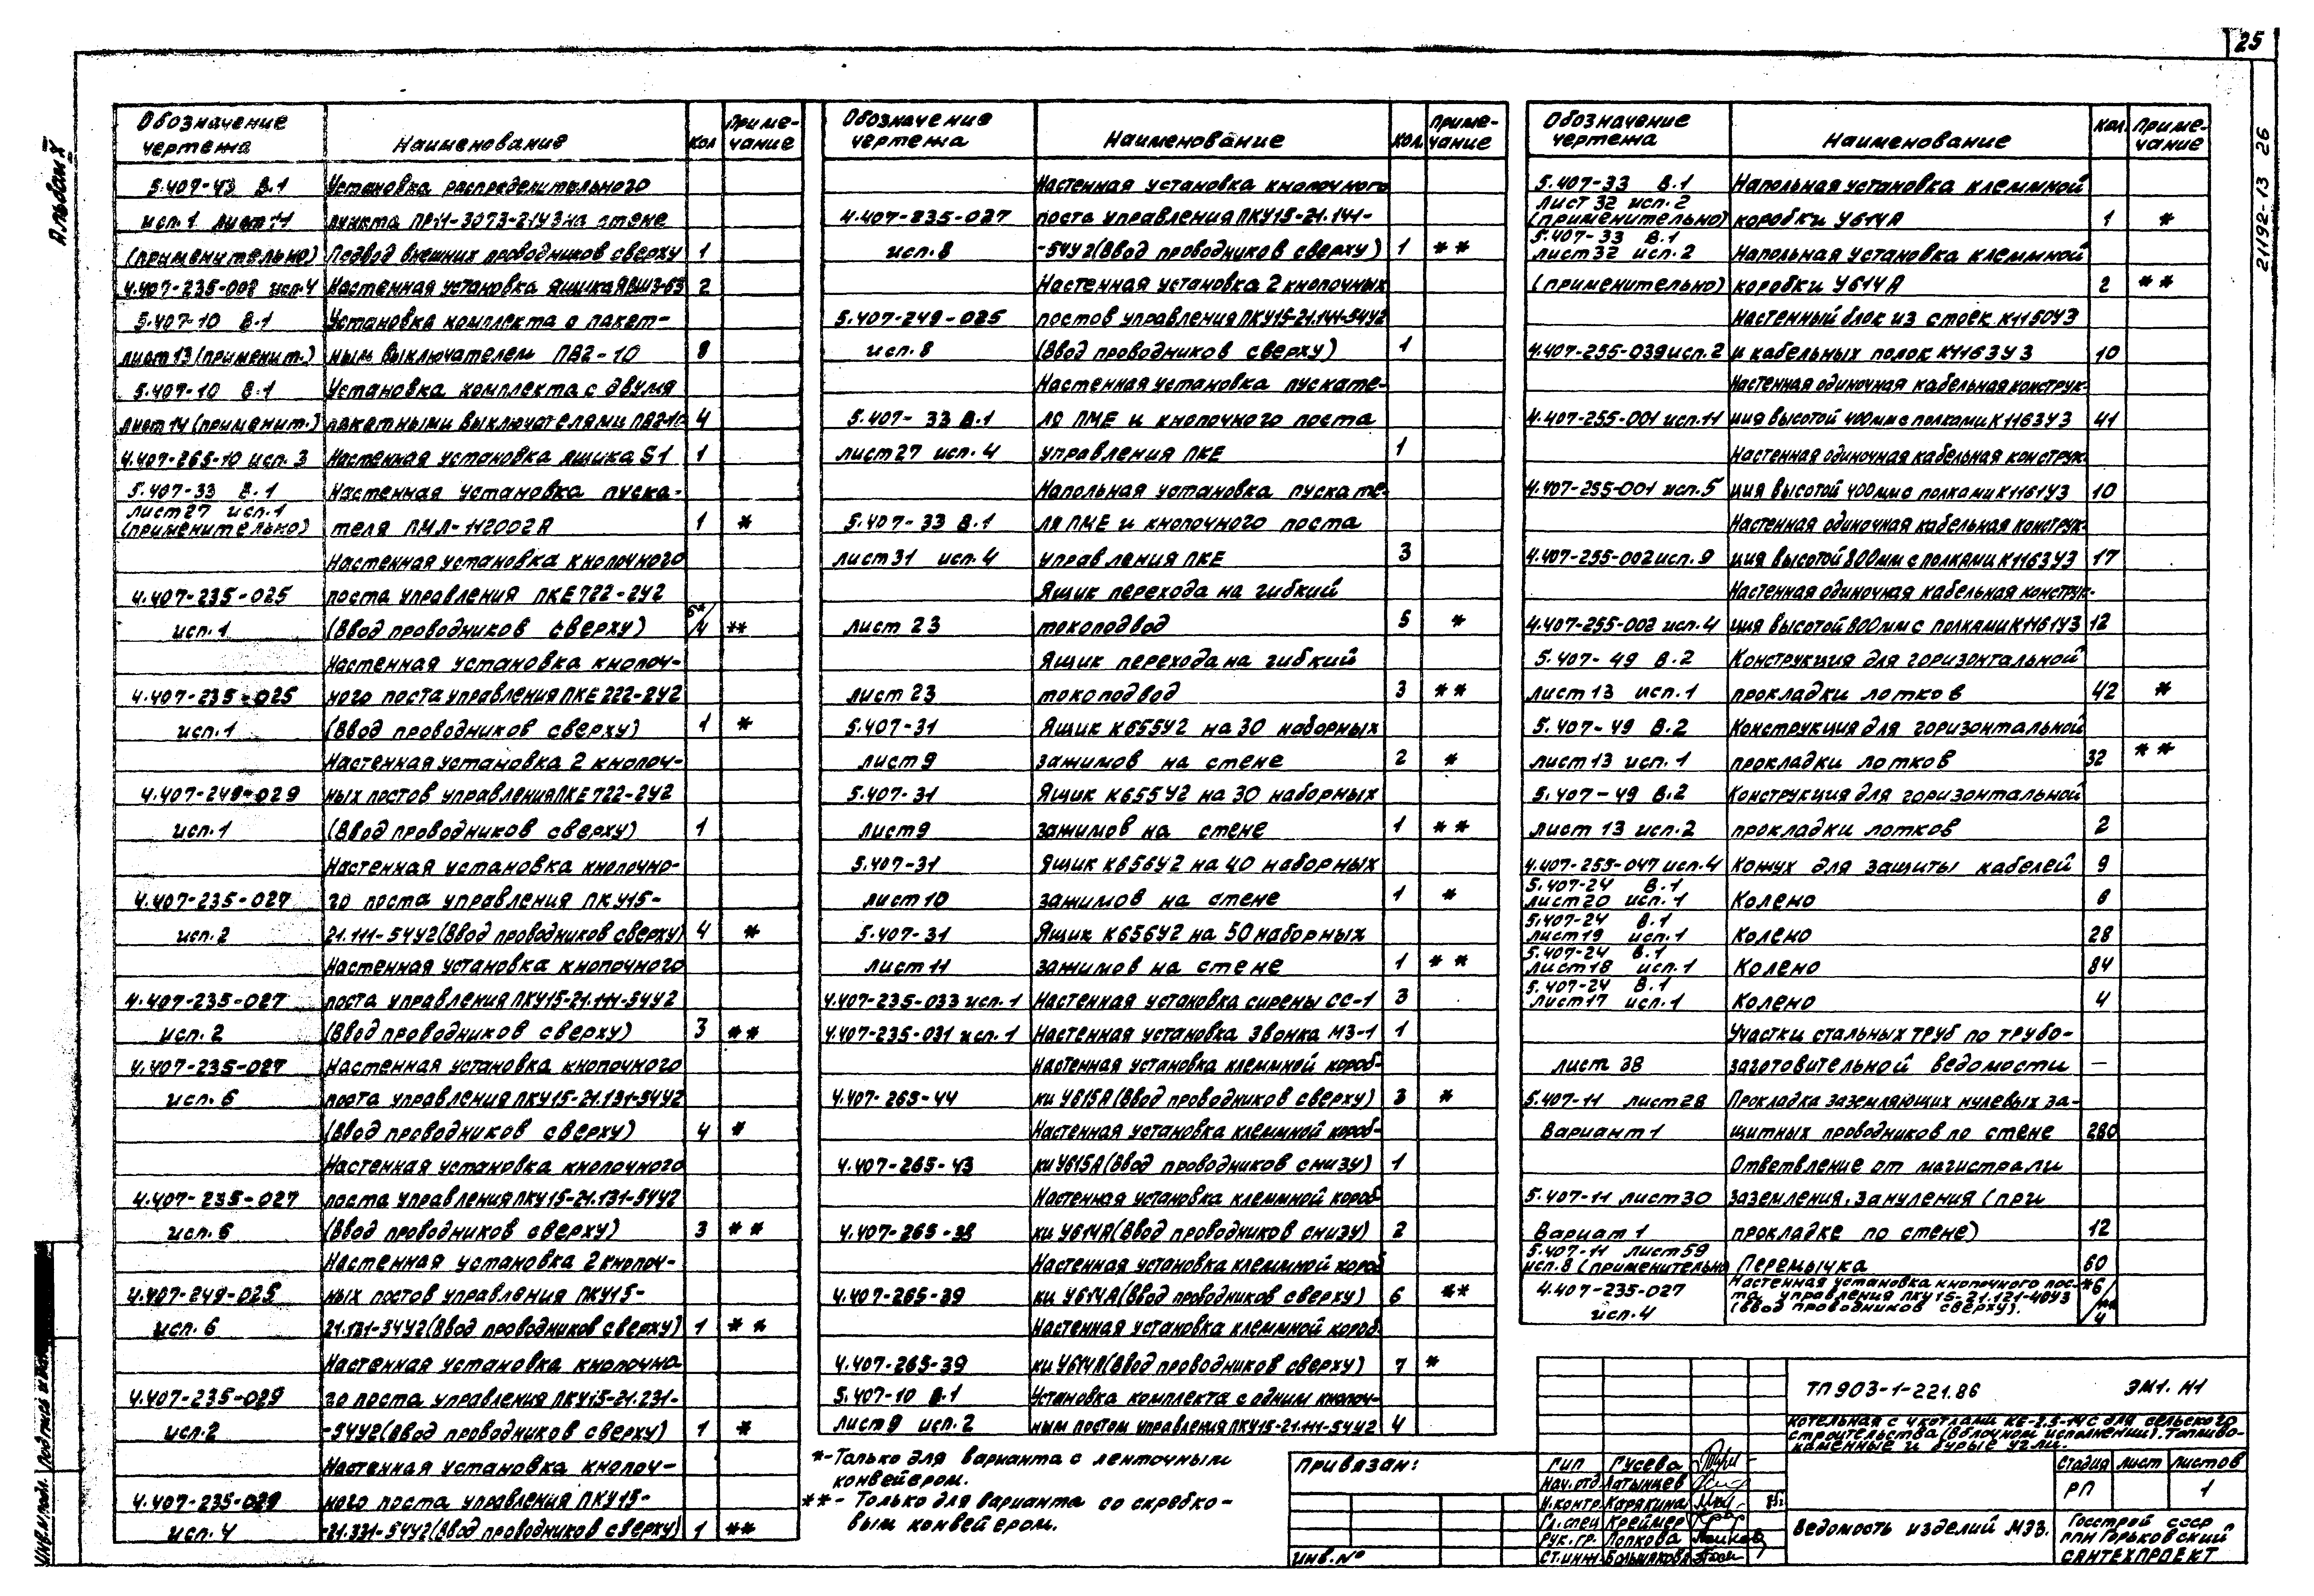 25
21192-13 26
Альбом X
Обозначение чертежа Наименование Кол Примечание
5.407-43 В.1 Установка распределительного
исп.1 лист 11 пункта ПР11-3073-21У3 на стене
(применительно) Подвод внешних проводников сверху 1
4.407-235-002 исп.4 Настенная установка ящика ЯВШ3-63 2
5.407-10 В.1 Установка комплекта с пакет-
лист 13 (применит.) ным выключателем ПВ2-10 8
5.407-10 В.1 Установка комплекта с двумя
лист 14 (применит.) пакетными выключателями ПВ2-10 4
4.407-265-10 исп. 3 Настенная установка ящика S1 1
5.407-33 В.1 Настенная установка пуска-
лист 27 исп.1
(применительно) теля ПМЛ-112002А 1 *
Настенная установка кнопочного
4.407-235-025 поста управления ПКЕ722-2У2
исп.1 (Ввод проводников сверху) 6*/4 **
Настенная установка кнопоч-
4.407-235-025 ного поста управления ПКЕ222-2У2
исп.1 (Ввод проводников сверху) 1 *
Настенная установка 2 кнопоч-
4.407-249-029 ных постов управления ПКЕ722-2У2
исп.1 (Ввод проводников сверху) 1
Настенная установка кнопочно-
4.407-235-027 го поста управления ПКУ15-
исп.2 21.111-54У2(Ввод проводников сверху) 4 *
Настенная установка кнопочного
4.407-235-027 поста управления ПКУ15-21.111-54У2
исп.2 (Ввод проводников сверху) 3 **
4.407-235-027 Настенная установка кнопочного
исп. 6 поста управления ПКУ15-21.131-54У2
(Ввод проводников сверху) 4 *
Настенная установка кнопочного
4.407-235-027 поста управления ПКУ15-21.131-54У2
исп.6 (Ввод проводников сверху) 3 **
Настенная установка 2 кнопоч-
4.407-249-025 ных постов управления ПКУ15-
исп. 6 21.131-54У2(Ввод проводников сверху) 1 **
Настенная установка кнопочно
4.407-235-029 го поста управления ПКУ15-21.231-
исп.2 -54У2(Ввод проводников сверху) 1 *
Настенная установка кнопоч-
4.407-235-029 ного поста управления ПКУ15-
исп. 4 -21.331-54У2(Ввод проводников сверху) 1 **
Обозначение чертежа Наименование Кол. Примечание
Настенная установка кнопочного
4.407-235-027 поста управления ПКУ15-21.141-
исп.8 -54У2(Ввод проводников сверху) 1 **
Настенная установка 2 кнопочных
5.407-249-025 постов управления ПКУ15-21.141-54У2
исп. 8 (Ввод проводников сверху) 1
Настенная установка пускате-
5.407-33 В.1 ля ПМЕ и кнопочного поста
лист 27 исп. 4 управления ПКЕ 1
Напольная установка пускате-
5.407-33 В.1 ля ПМЕ и кнопочного поста
лист 31 исп. 4 управления ПКЕ 3
Ящик перехода на гибкий
лист 23 токоподвод 5 *
Ящик перехода на гибкий
лист 23 токоподвод 3 **
5.407-31 Ящик К655У2 на 30 наборных
лист 9 зажимов на стене 2 *
5.407-31 Ящик К655У2 на 30 наборных
лист 9 зажимов на стене 1 **
5.407-31 Ящик К656У2 на 40 наборных
лист 10 зажимов на стене 1 *
5.407-31 Ящик К656У2 на 50 наборных
лист 11 зажимов на стене 1 **
4.407-235-033 исп.1 Настенная установка сирены СС-1 3
4.407-235-031 исп.1 Настенная установка звонка МЗ-1 1
Настенная установка клеммной короб-
4.407-265-44 ки У615А(Ввод проводников сверху) 3 *
Настенная установка клеммной короб-
4.407-265-43 ки У615А(Ввод проводников снизу) 1
Настенная установка клеммной короб
4.407-265-38 ки У614А(Ввод проводников снизу) 2
Настенная установка клеммной короб
4.407-265-39 ки У614А(Ввод проводников сверху) 6 **
Настенная установка клеммной короб
4.407-265-39 ки У614А(Ввод проводников сверху) 7 *
5.407-10 В.1 Установка комплекта с одним кнопоч-
лист 9 исп. 2 ным постом управления ПКУ15-21.111-54У2 4
*-Только для варианта с ленточным
конвейером.
**- Только для варианта со скребко-
вым конвейером.
Обозначение чертежа Наименование Кол. Примечание
5.407-33 В.1 Напольная установка клеммной
лист 32 исп. 2
(применительно) коробки У614А 1 *
5.407-33 В.1
лист 32 исп. 2 Напольная установка клеммной
(применительно) коробки У614А 2 **
Настенный блок из стоек К1150У3
4.407-255-039 исп. 2 и кабельных полок К1163У3 10
Настенная одиночная кабельная конструк-
4.407-255-001 исп.11 ция высотой 400мм с полками К1163У3 41
Настенная одиночная кабельная конструк-
4.407-255-001 исп.5 ция высотой 400мм с полками К1161У3 10
Настенная одиночная кабельная конструк-
4.407-255-002 исп. 9 ция высотой 800мм с полками К1163У3 17
Настенная одиночная кабельная конструк-
4.407-255-002 исп.4 ция высотой 800мм с полками К1161У3 12
5.407-49 В.2 Конструкция для горизонтальной
лист 13 исп.1 прокладки лотков 42 *
5.407-49 В.2 Конструкция для горизонтальной
лист 13 исп.1 прокладки лотков 32 **
5.407-49 В.2 Конструкция для горизонтальной
лист 13 исп.2 прокладки лотков 2
4.407-255-047 исп.4 Кожух для защиты кабелей 9
5.407-24 В.1
лист 20 исп.1 Колено 6
5.407-24 В.1
лист 19 исп.1 Колено 28
5.407-24 В.1
лист 18 исп.1 Колено 84
5.407-24 В.1
лист 17 исп.1 Колено 4
Участки стальных труб по трубо-
лист 38 заготовительной ведомости —
5.407-11 лист 28 Прокладка заземляющих нулевых за-
Вариант 1 щитных проводников по стене 280
Ответвление от магистрали
5.407-11 лист 30 заземления, зануления (при
Вариант 1 прокладке по стене) 12
5.407-11 лист 59
исп.8 (применительно Перемычка 60
4.407-235-027 Настенная установка кнопочного пос-
та управления ПКУ15-21.121-40У3
исп.4 (Ввод проводников сверху). *6/**4
ТП 903-1-221.86 ЭМ1. Н1
Котельная с 4 котлами КЕ-2,5-14С для сельского
строительства (в блочном исполнении). Топливо-
каменные и бурые угли.
Привязан:
Инв.№
ГИП Гусева
Нач.отд. Латынцев
Н.контр. Карякина
Гл.спец Креймер
Рук.гр. Попкова
Ст.инж. Большакова
Стадия Лист Листов
РП 1
Ведомость изделий МЭЗ.
Госстрой СССР
ГПИ Горьковский
САНТЕХПРОЕКТ
Инв.№ подл. Подпись и дата